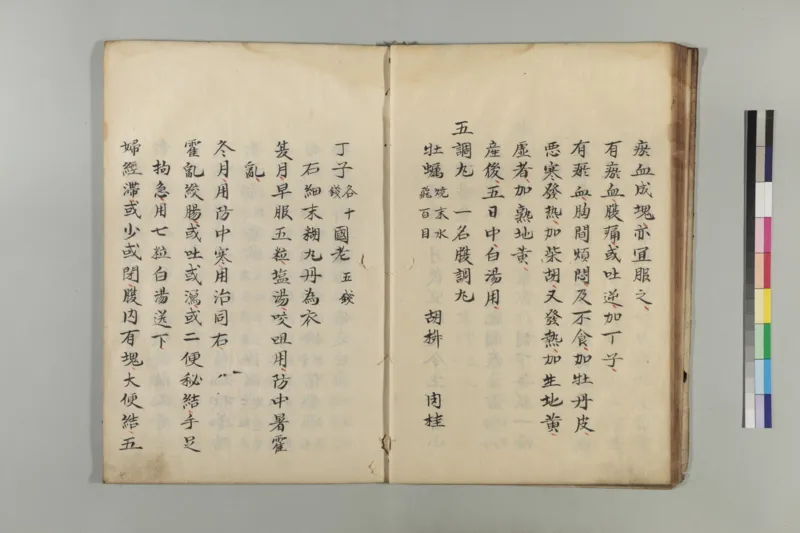 瘀血成塊亦宜服之
有瘀血腹痛或吐逆加丁子
有瘀血胸間煩悶及不食加牡丹皮
悪寒發熱加柴胡又發熱加生地黄
虚者加熟地黄
産後五日中白湯用
五調丸 一名腹調丸
牡蠣 焼末水飛百目 胡椒 肉桂
丁子 各十錢 國老 五錢
右細末糊丸丹為衣
夏月早服五粒塩湯咬咀用防中暑霍
亂
冬月用防中寒用治同右
霍亂後腸或吐或瀉或二便秘結手足
拘急用七粒白湯送下
婦經滞或少或閉腹内有塊大便結五